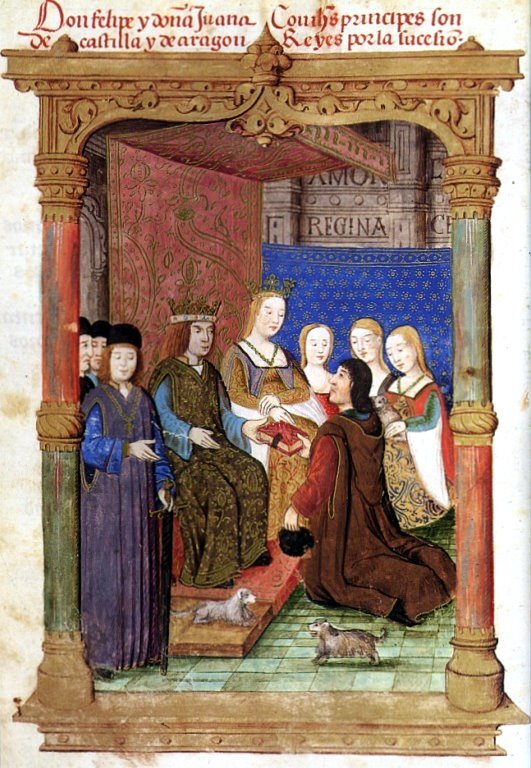 Don felipe y doña Juana Con ihs principes son
de castilla y de aragon Reyes por la sucesio
AMON
REGINA